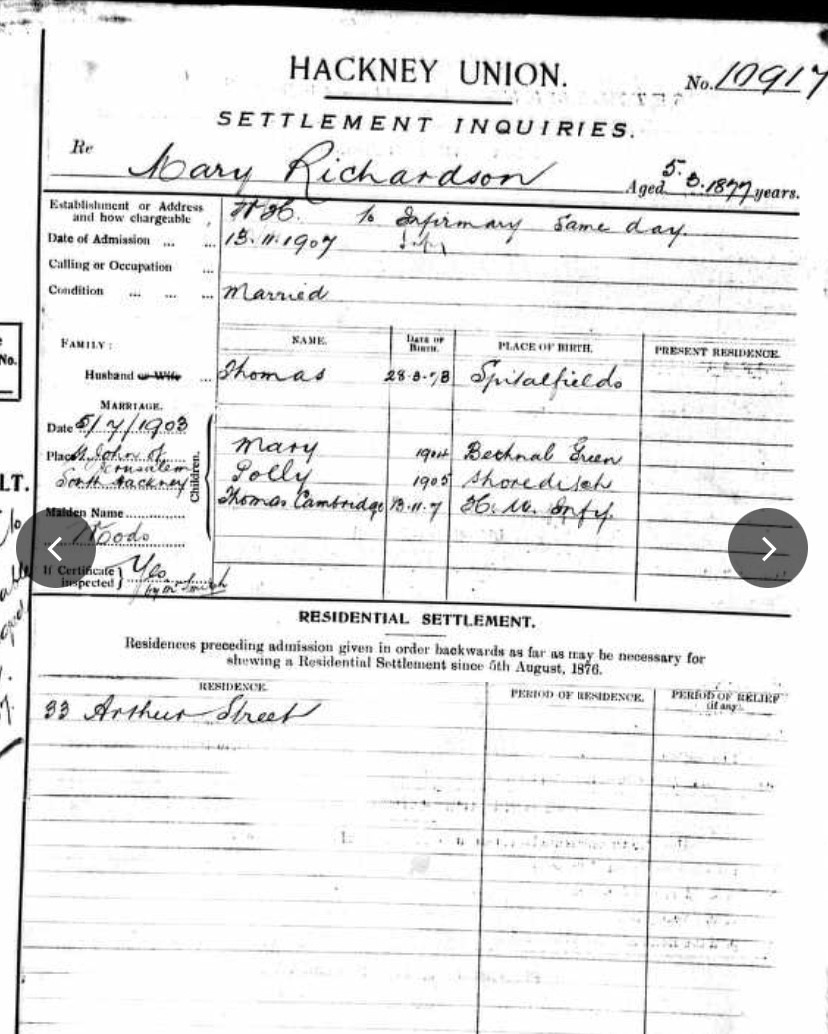 HACKNEY UNION.
No. 10917
SETTLEMENT INQUIRIES.
Re Mary Richardson Aged 5.3.1877 years.
Establishment or Address and how chargeable W.H. to Infirmary Same day.
Date of Admission ... ... 13.11.1907
Calling or Occupation ...
Condition ... ... ... Married
FAMILY: NAME. DATE OF BIRTH. PLACE OF BIRTH. PRESENT RESIDENCE.
Husband or Wife ... Thomas 28.3.78 Spitalfields
MARRIAGE.
Date 5/7/1903
Children.
Mary 1904 Bethnal Green
Place St John of
Jerusalem
Polly 1905 Shoreditch
South Hackney
Thomas Cambridge 13.11.7 H. U. Infy.
Maiden Name
Woods
If Certificate inspected } Yes
by Mr Smith
RESIDENTIAL SETTLEMENT.
Residences preceding admission given in order backwards as far as may be necessary for
shewing a Residential Settlement since 5th August, 1876.
RESIDENCE. PERIOD OF RESIDENCE. PERIOD OF RELIEF (if any).
33 Arthur Street
No.
LT.